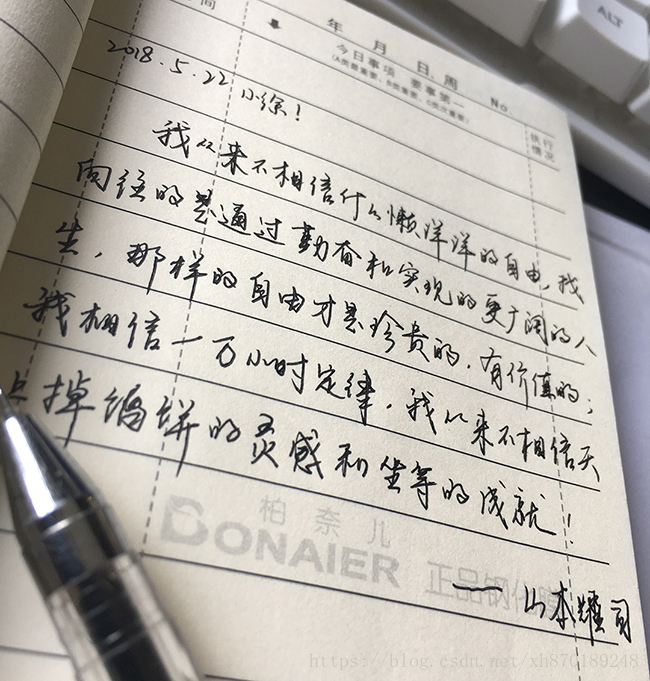 年 月 日 周 No.
今日事项 要事第一
执行
情况
ALT
2018.5.22 小徐!
我从来不相信什么懒洋洋的自由,我
向往的是通过勤奋和实现的更广阔的人
生,那样的自由才是珍贵的,有价值的;
我相信一万小时定律,我从来不相信天
上掉馅饼的灵感和坐等的成就!
柏奈儿
BONAIER 正品钢化膜
—— 山本耀司
https://blog.csdn.net/xh870189248